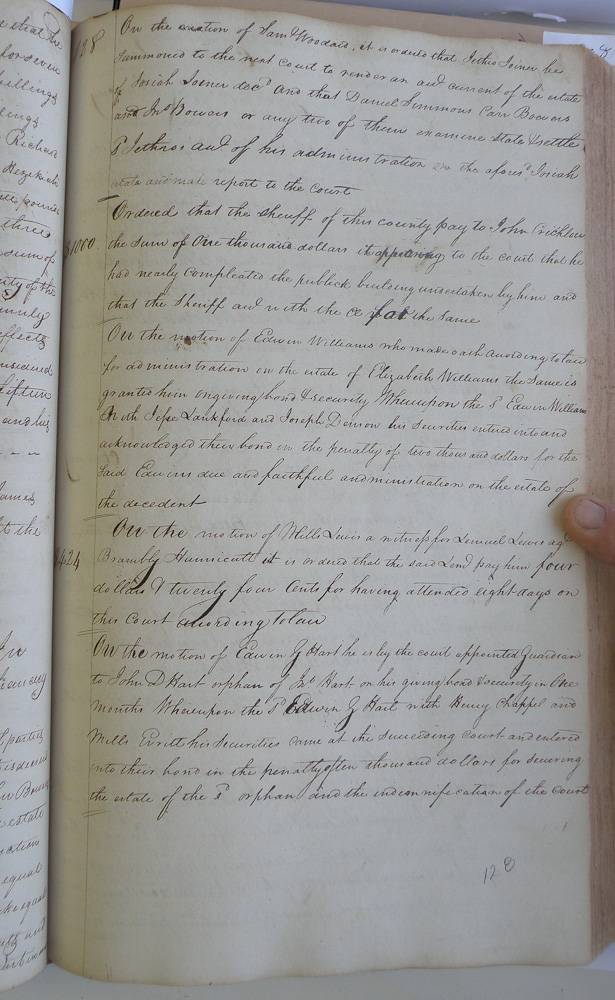 128
On the motion of Sam Woodard, it is ordered that Jethro Joiner be
summoned to the next court to render an acct current of the estate
of Josiah Joiner decd and that Daniel Simmons Carr Bowers
and Jno Bowers or any two of them examine state & settle
sd Jethros acct of his administration on the aforesd Josiah
estate and make report to the Court
Ordered that the Sheriff of this county pay to John Crichlow
$1000
the sum of One thousand dollars it appearing to the court that he
had nearly compleated the publick building undertaken by him and
that the Sheriff acct with the Ct for the same
On the motion of Edwin Williams who made oath according to law
for administration on the estate of Elizabeth Williams the same is
granted him on giving bond & security Whereupon the sd Edwin Williams
with Jesse Lankford and Joseph Denson his securities entered into and
acknowledged their bond in the penalty of two thousand dollars for the
said Edwins due and faithful administration on the estate of
the decedent
On the motion of Mills Lewis a witness for Lemuel Lewis agt
4.24
Brambly Hunnicutt it is ordered that the said Leml pay him four
dollars & twenty four Cents for having attended eight days on
this Court according to law
On the motion of Edwin G Hart he is by the court appointed Guardian
to John D Hart orphan of Jno Hart on his giving bond & security in One
months Whereupon the sd Edwin G Hart with Henry Chappel and
Mills his securities came at the succeeding Court and entered
into their bond in the penalty of ten thousand dollars for securing
the estate of the sd orphan and the indemnification of the Court
128